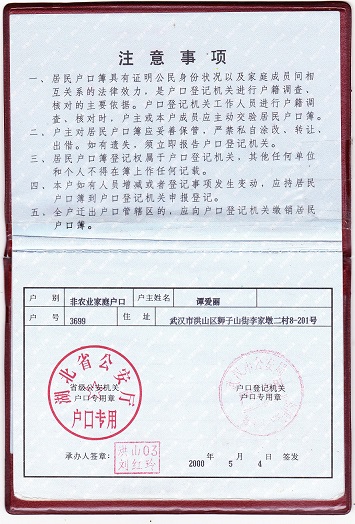 注意事项
一、居民户口簿具有证明公民身份状况以及家庭成员间相
互关系的法律效力，是户口登记机关进行户籍调查、
核对的主要依据。户口登记机关工作人员进行户籍调
查、核对时，户主或本户成员应主动交验居民户口簿。
二、户主对居民户口簿应妥善保管，严禁私自涂改、转让、
出借。如有遗失，须立即报告户口登记机关。
三、居民户口簿登记权属于户口登记机关，其他任何单位
和个人不得在簿上作任何记载。
四、本户如有人员增减或者登记事项发生变动，应持居民
户口簿到户口登记机关申报登记。
五、全户迁出户口管辖区的，应向户口登记机关缴销居民
户口簿。
户 别 非农业家庭户口 户主姓名 谭爱丽
户 号 3699 住 址 武汉市洪山区狮子山街李家墩二村8-201号
湖北省公安厅
省级公安机关
户口专用章
户口专用
户口登记机关
户口专用章
承办人签章：
洪山03
刘红玲
2000 年 5 月 4 日 签发